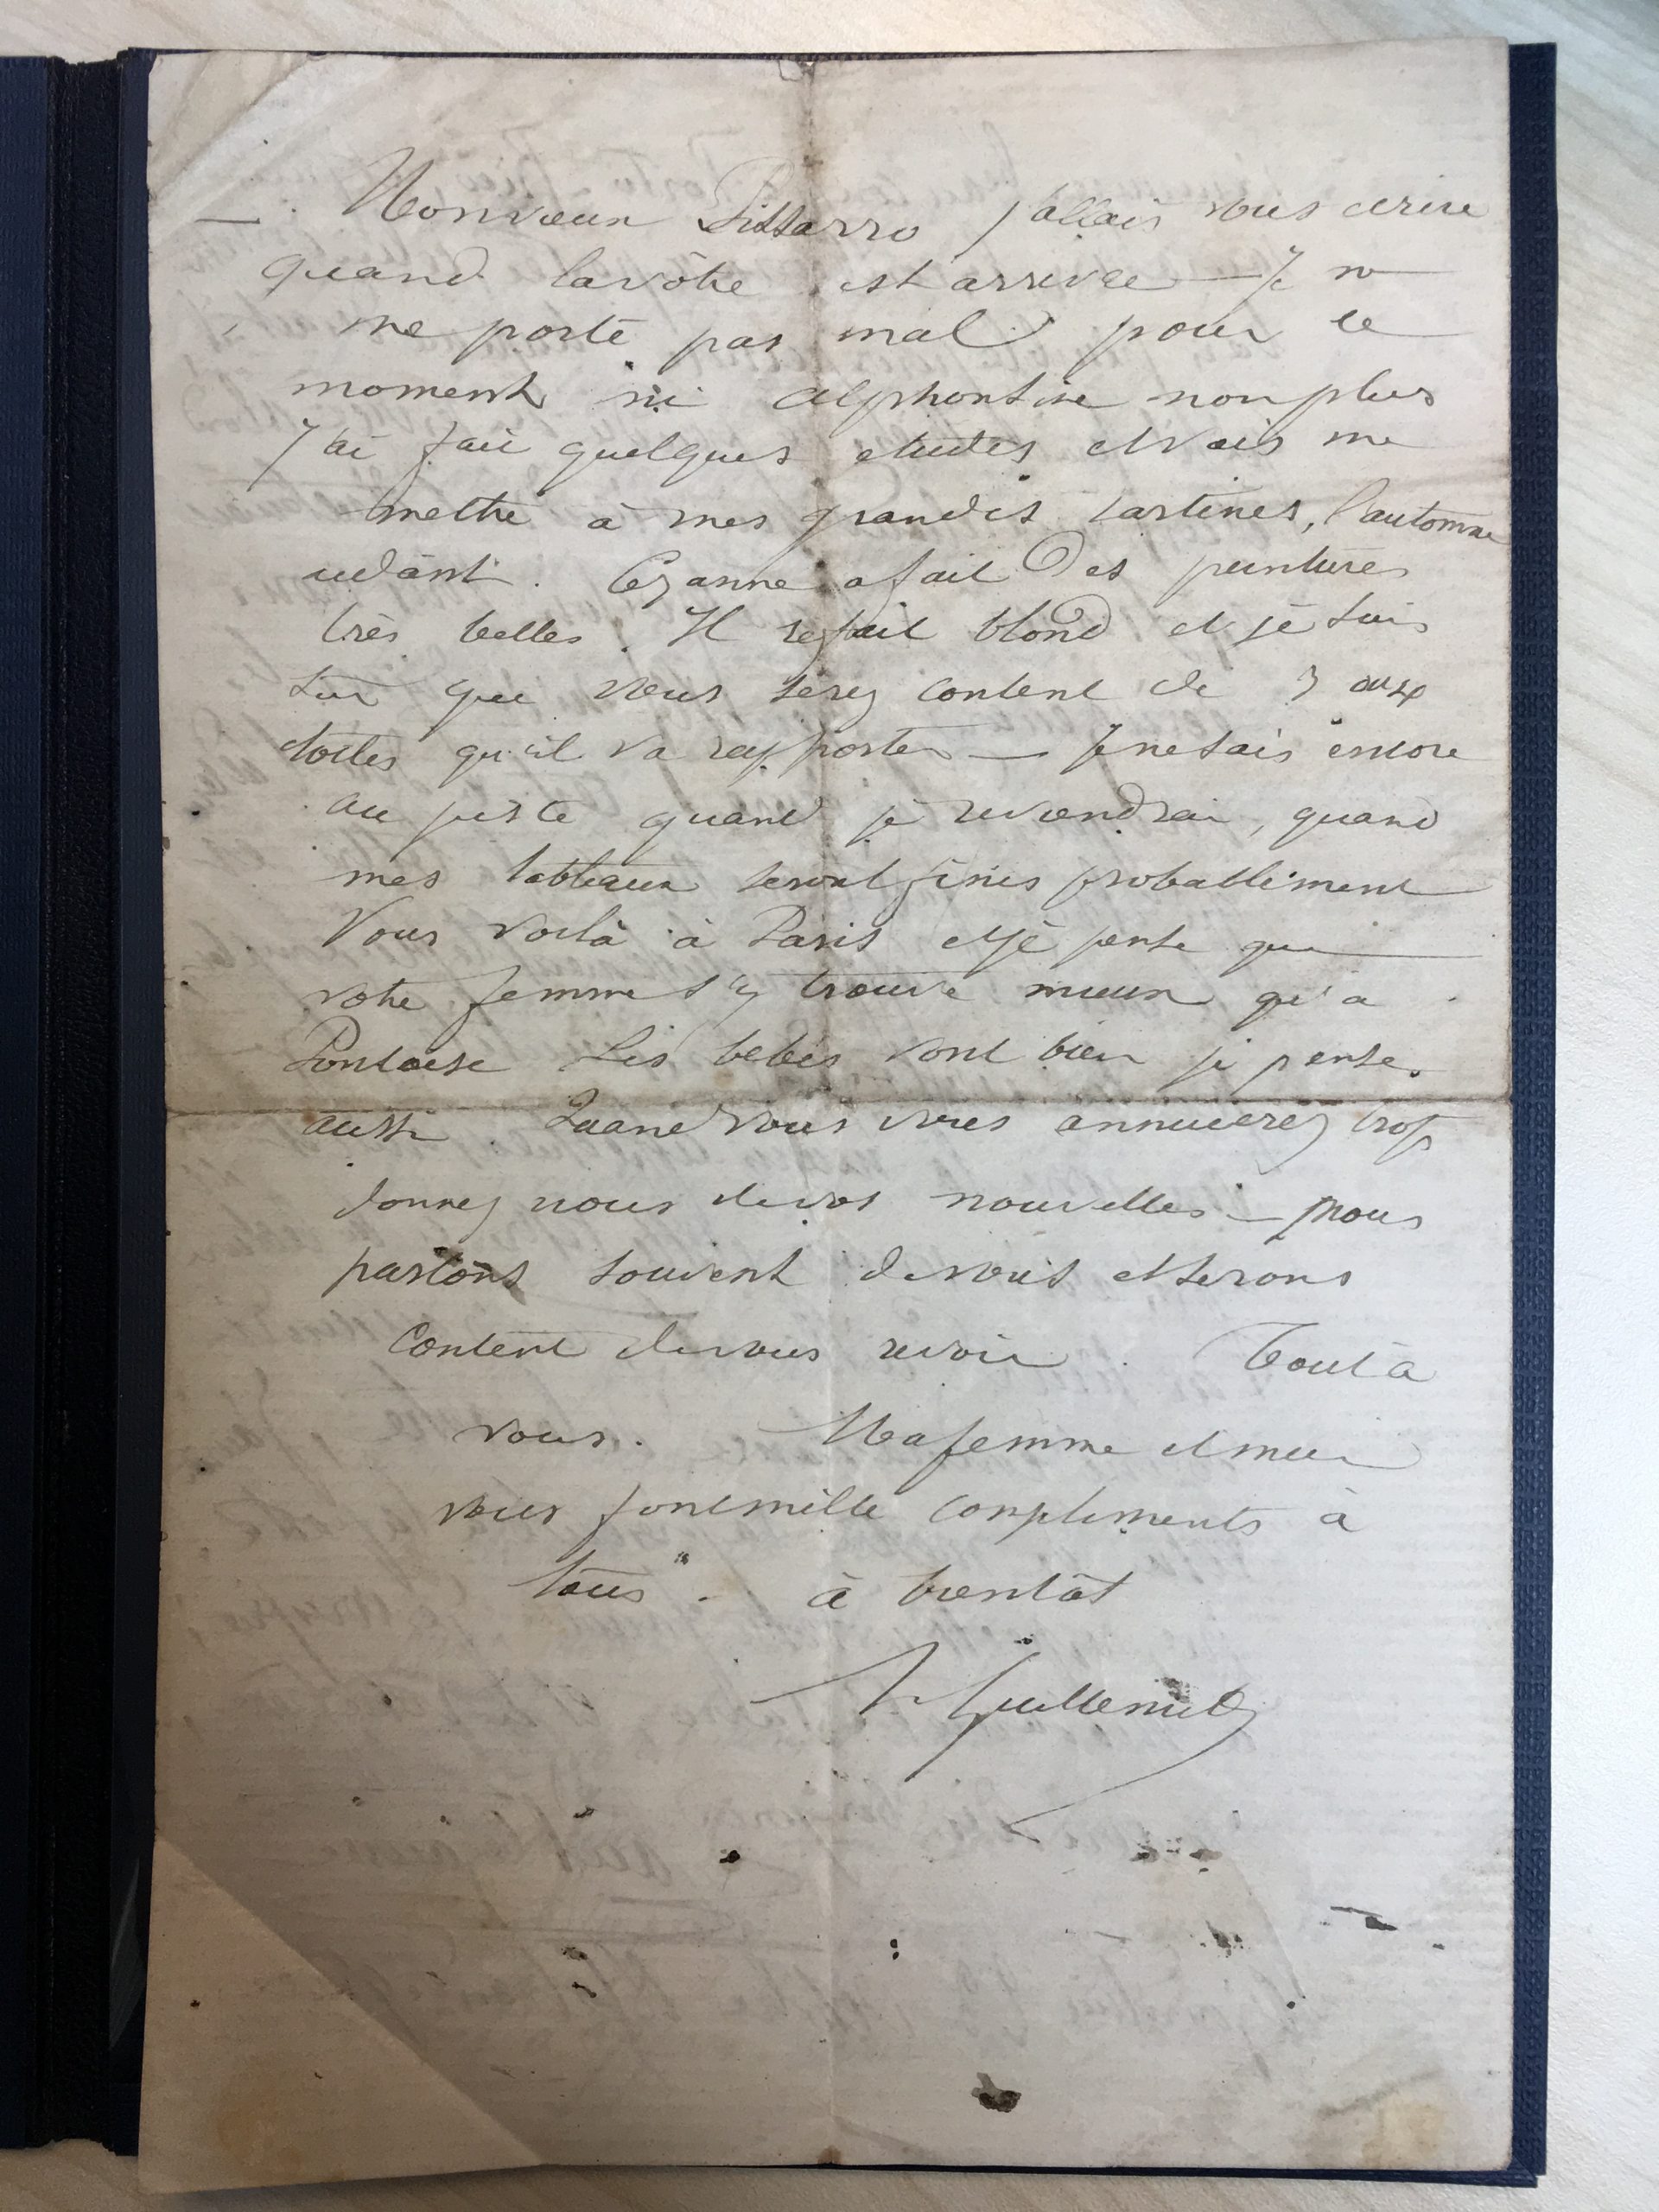 — . Mon vieux Pissarro j'allais vous écrire
quand la vôtre est arrivée — Je n
me porte pas mal pour le
moment ni Alphonsine non plus
J'ai fait quelques etudes et vais me
mettre à mes grandes tartines, l'automne
aidant. Cezanne a fait des peintures
très belles. Il refait blond et je suis
sur que vous serez content de 3 ou 4
toiles qu'il va rapporter — Je ne sais encore
au juste quand je reviendrai, quand
mes tableaux seront finis probablement
Vous voilà à Paris et je pense que
votre femme s'y trouve mieux qu'a
Pontoise Les bebes vont bien je pense
aussi. Quand vous vous ennuierez trop
donnez nous de vos nouvelles — nous
parlons souvent de vous et serons
content de vous revoir. Tout à
vous. Ma femme et moi
vous font mille compliments à
tous. à bientôt
A Guillemet